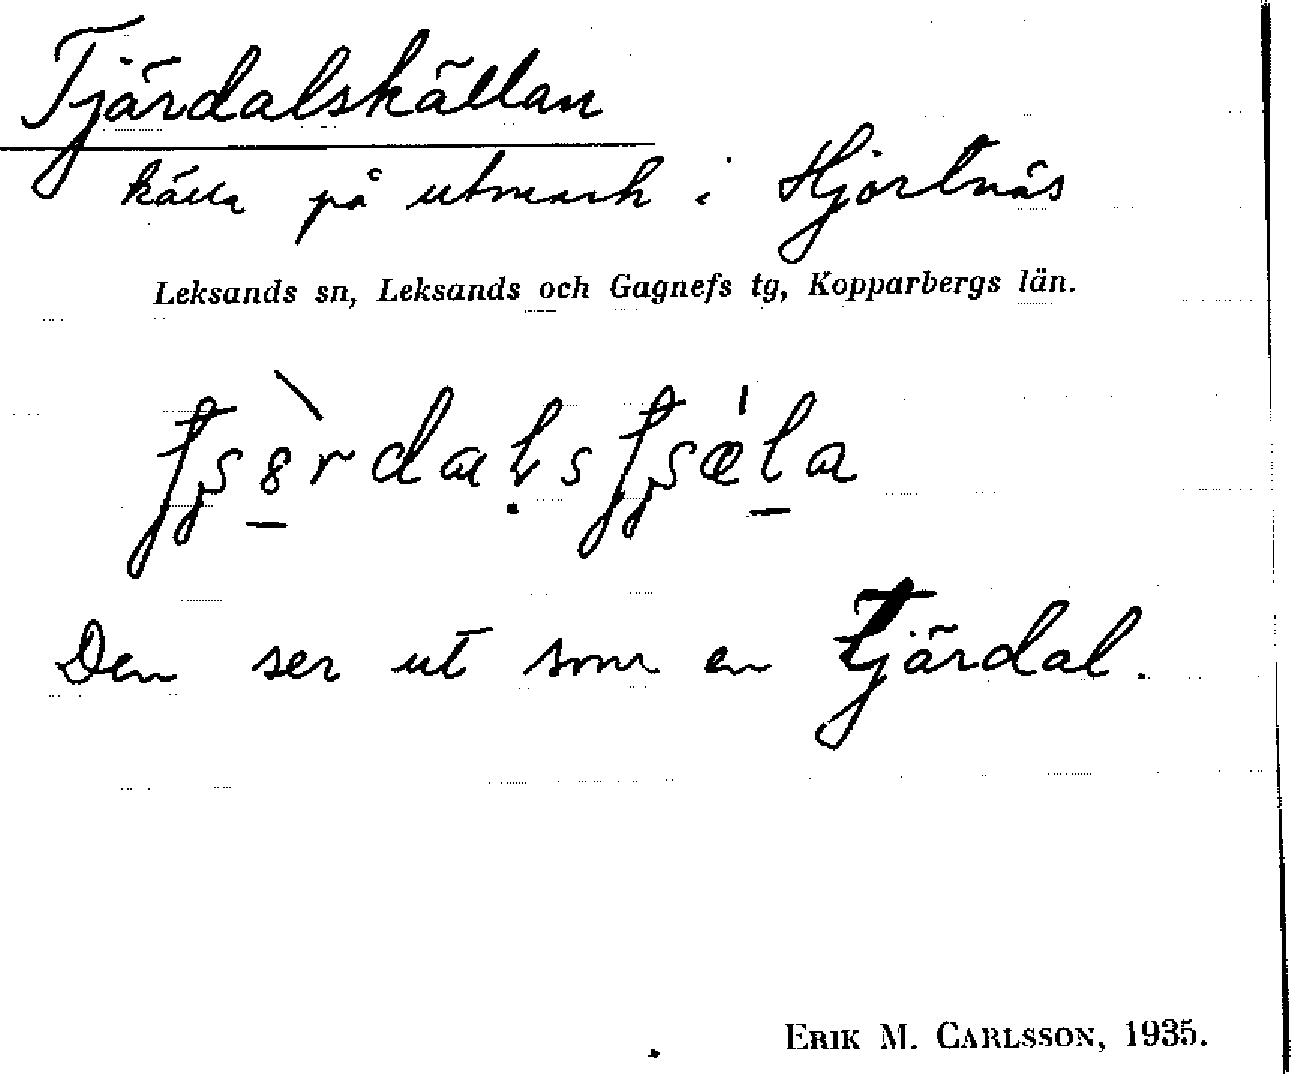 Tjärdalskällan
källa på utmark i Hjortnäs
Leksands sn, Leksands och Gagnefs tg, Kopparbergs län.
Den ser ut som en tjärdal.
ERIK M. CARLSSON, 1935.